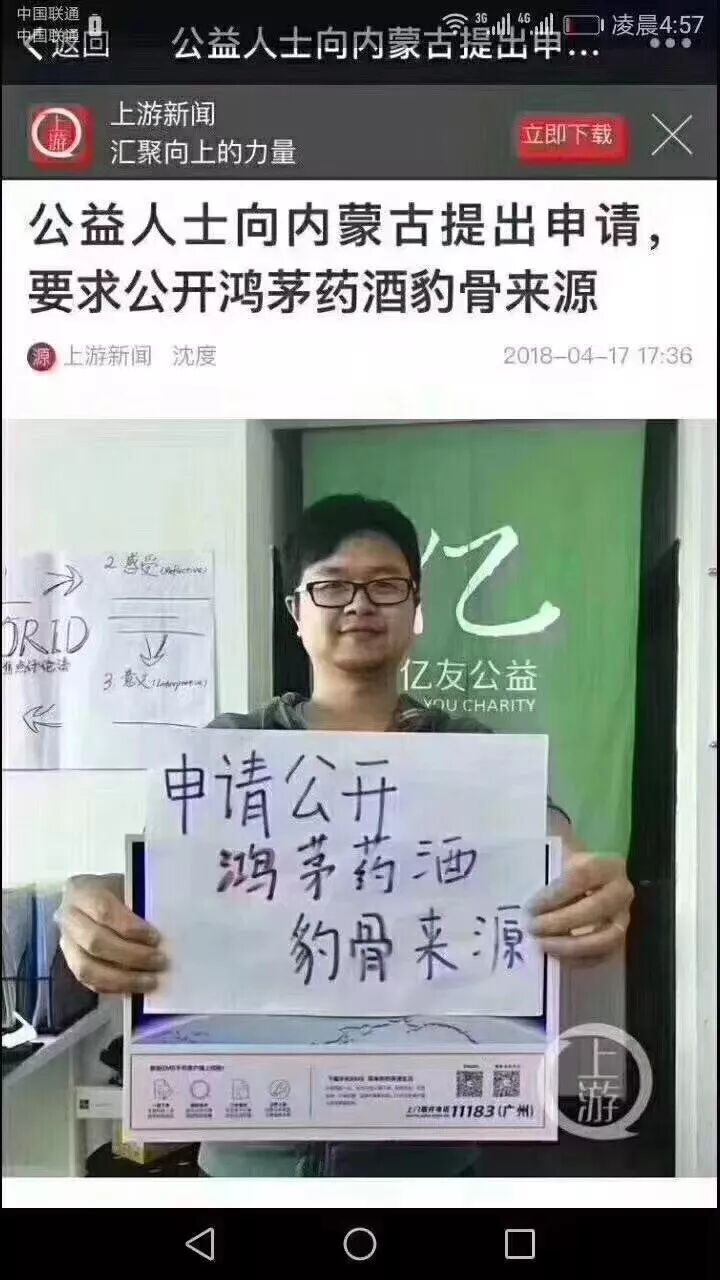 中国联通
中国联通
3G
4G
凌晨4:57
返回
公益人士向内蒙古提出申...
上游
上游新闻
汇聚向上的力量
立即下载
公益人士向内蒙古提出申请，
要求公开鸿茅药酒豹骨来源
源 上游新闻 沈度
2018-04-17 17:36
2 感受(Reflective)
ORID
焦点讨论法
3. 意义(Interpretive)
亿
亿友公益
YOU CHARITY
申请公开
鸿茅药酒
豹骨来源
11183(广州)
上游